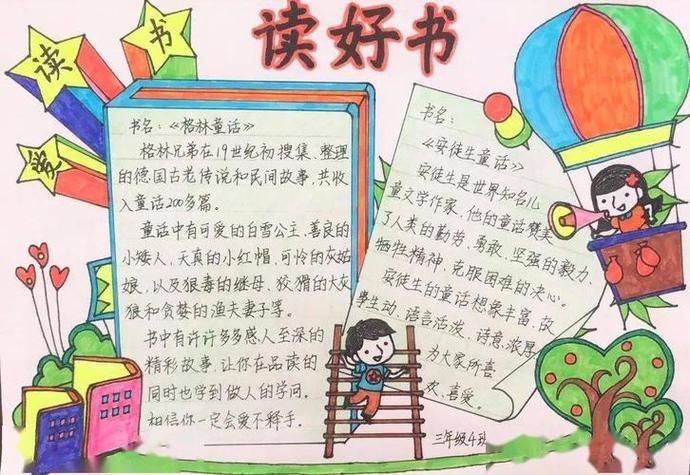 读好书
读
书
爱
书名:《格林童话》
格林兄弟在19世纪初搜集、整理
的德国古老传说和民间故事,共收
入童话200多篇。
童话中有可爱的白雪公主,善良的
小矮人,天真的小红帽,可怜的灰姑
娘,以及狠毒的继母、狡猾的大灰
狼和贪婪的渔夫妻子等。
书中有许许多多感人至深的
精彩故事,让你在品读的
同时也学到做人的学问。
相信你一定会爱不释手。
书名:
《安徒生童话》
安徒生是世界知名儿
童文学作家,他的童话赞美
了人类的勤劳、勇敢、坚强的毅力、
牺牲精神,克服困难的决心。
安徒生的童话想象丰富,故
事生动,语言活泼,诗意浓厚,
为大家所喜
欢、喜爱。
三年级4班